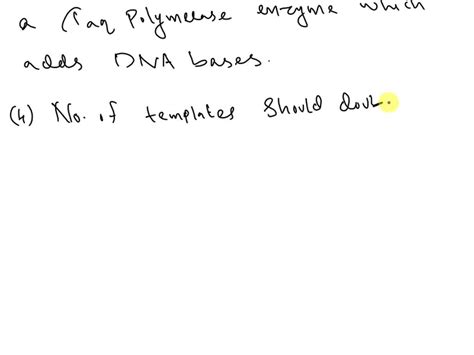 a (Taq Polymerase enzyme which
adds DNA bases.
(4) No. of templates should doub